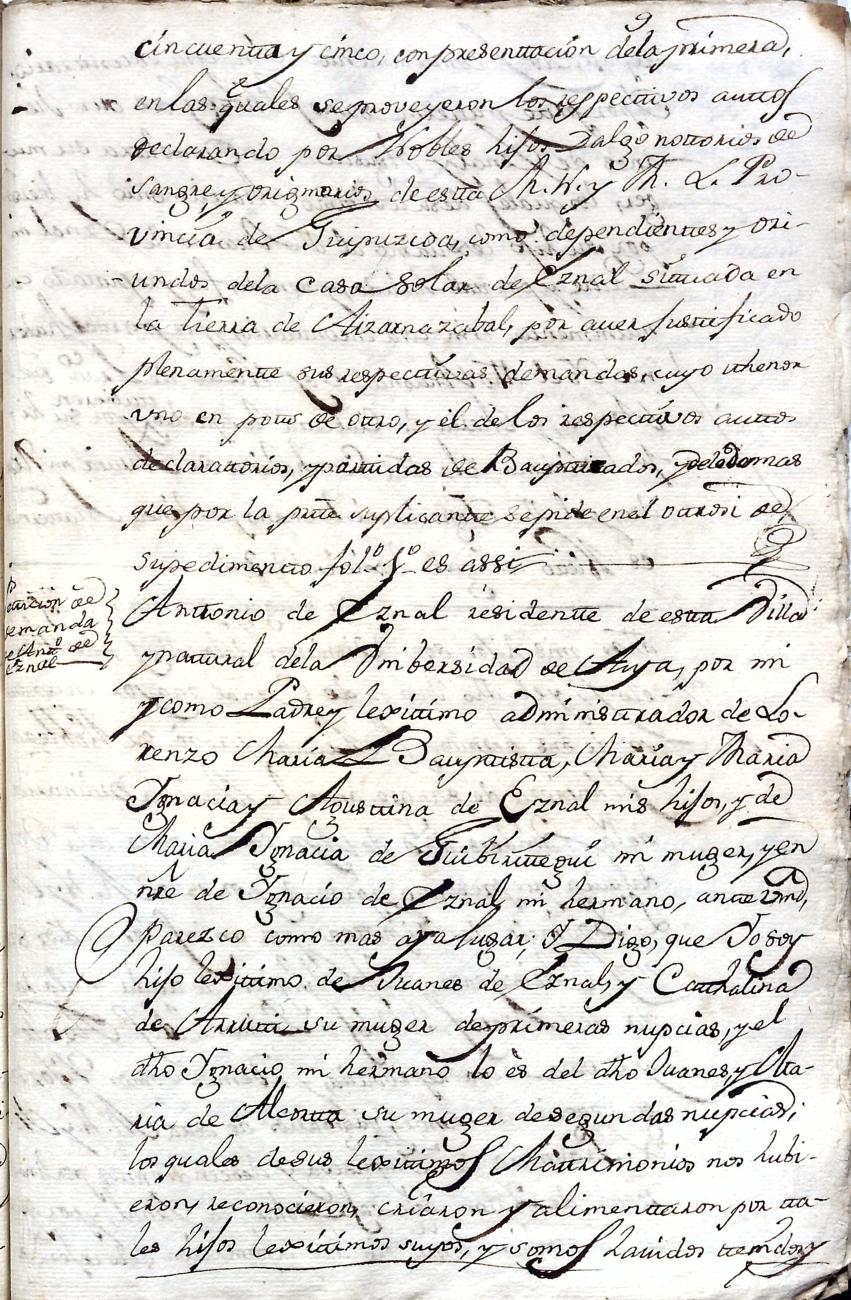 9
cincuentta y cinco, con presenttacion dela primera,
en las quales se proveyeron los respectivos auttos
declarando por Nobles hijos Dalgo nottorios de
sangre y originarios de estta M. N. y M. L. Pro-
vincia de Guipuzcoa, como dependienttes y ori-
undos dela Casa Solar de Eznal situada en
la tierra de Aizarnazabal, por aver justificado
plenamentte sus respectivas demandas, cuyo thenor
uno en pos de ottro, y el de los respectivos auttos
declarattorios, y parttidas de Bauptizados, y delo demas
que por la prte suplicantte se pide en el ottrosi de
su pedimentto fol.º 1º es assi
Petticion de
demanda
de Antº de
Eznal
Anttonio de Eznal residentte de estta Villa
y nattural dela Universidad de Aya, por mi
y como Padre y lexittimo administtrador de Lo-
renzo Maria Bauptistta, Maria y Maria
Ygnacia y Agusttina de Eznal mis hijos, y de
Maria Ygnacia de mi muger, y en
nre de Ygnacio de Eznal mi hermano, antte Vmd,
parezco como mas aya lugar, Y Digo, que Yo soy
hijo lexittimo de Juanes de Eznal, y Catthalina
de Arrutti su muger de primeras nupcias, y el
dho Ygnacio mi hermano lo es del dho Juanes, y Ma-
ria de su muger de segundas nupcias,
los quales de sus lexittimos Mattrimonios nos hubi-
eron, reconocieron, criaron y alimenttaron por tta-
les hijos lexittimos suyos, y somos havidos ttenidos y